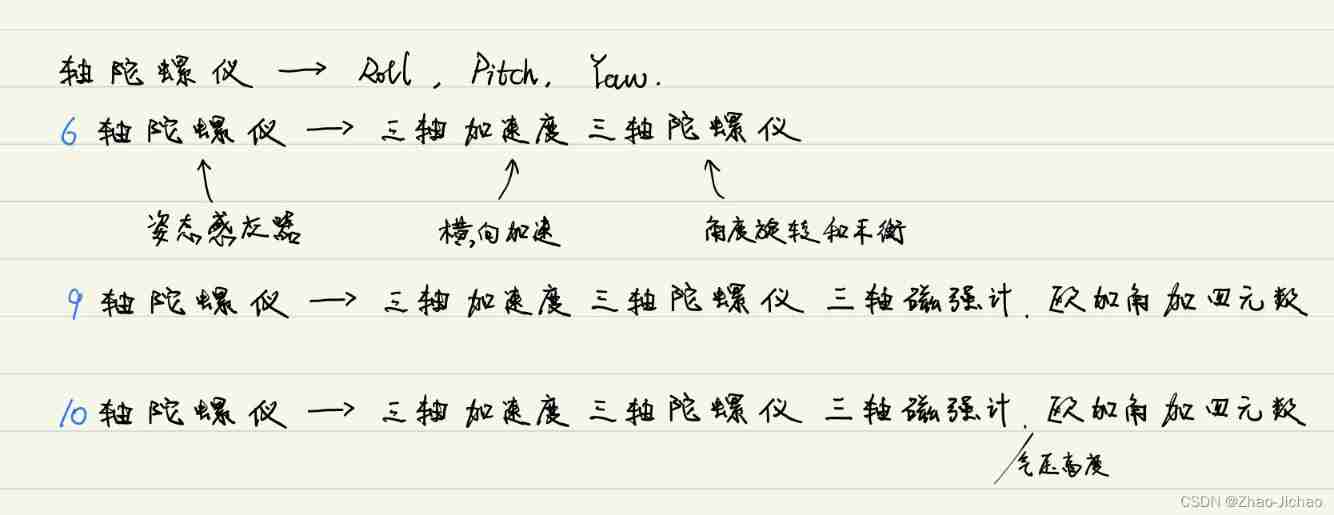 轴陀螺仪 → Roll, Pitch, Yaw.
6 轴陀螺仪 → 三轴加速度 三轴陀螺仪
姿态感应器 横向加速 角度旋转和平衡
9 轴陀螺仪 → 三轴加速度 三轴陀螺仪 三轴磁强计. 欧加角加四元数
10 轴陀螺仪 → 三轴加速度 三轴陀螺仪 三轴磁强计. 欧加角加四元数
气压高度
CSDN @Zhao-Jichao